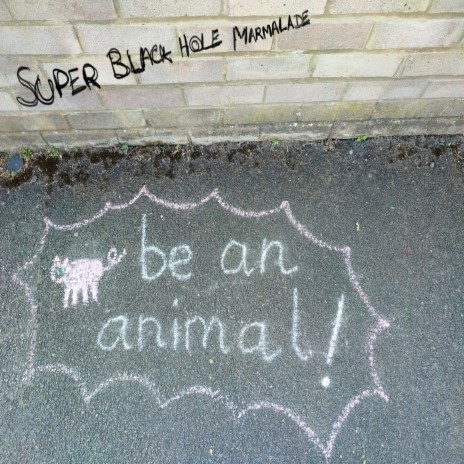 Super Black Hole Marmalade
be an
animal!